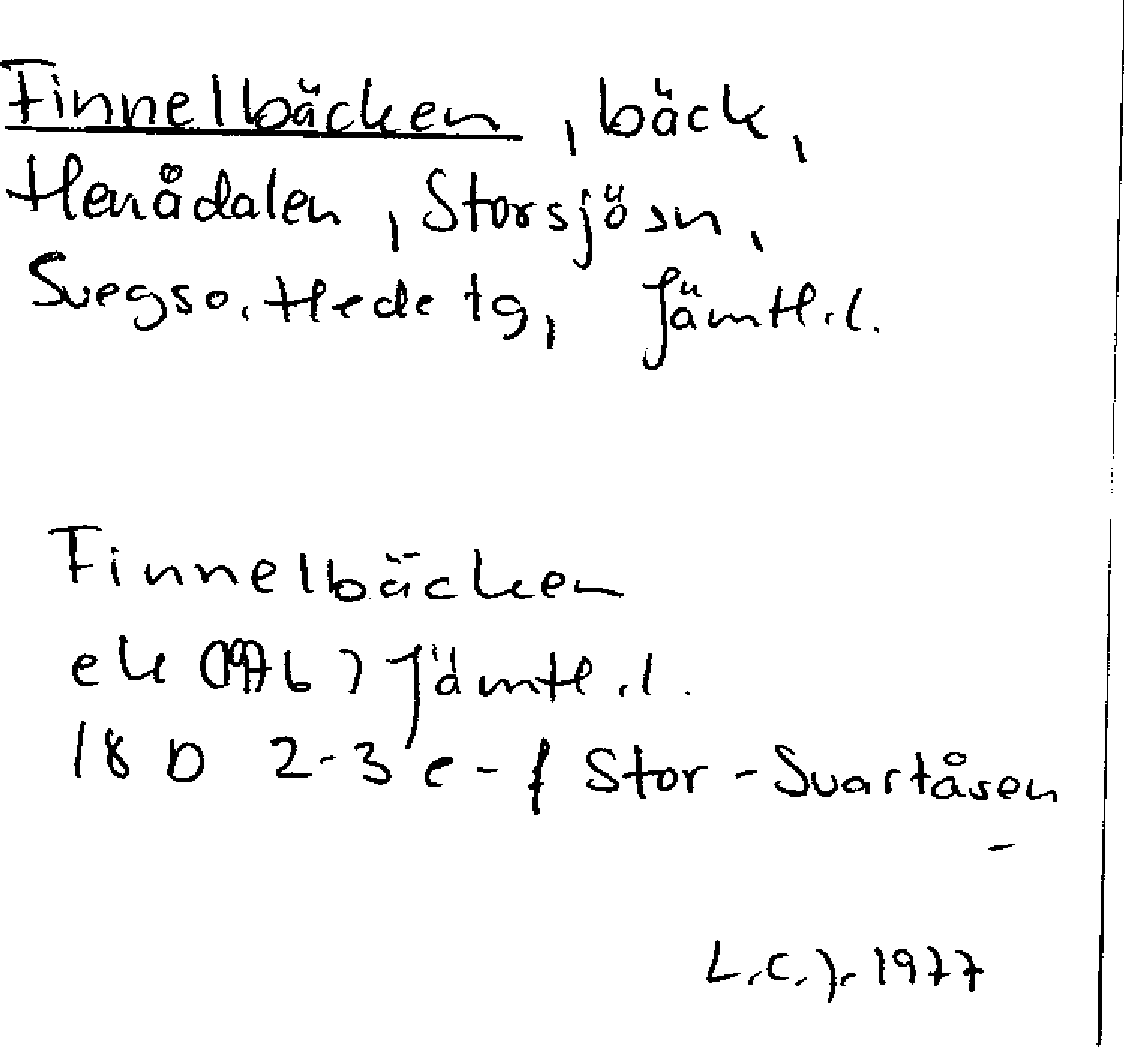 Finnelbäcken, bäck,
Henådalen, Storsjö sn,
Svegs o. Hede tg, Jämtl. l.
Finnelbäcken
ek (1976) Jämtl. l.
18 D 2-3 e-f Stor-Svartåsen
L.C.J. 1977